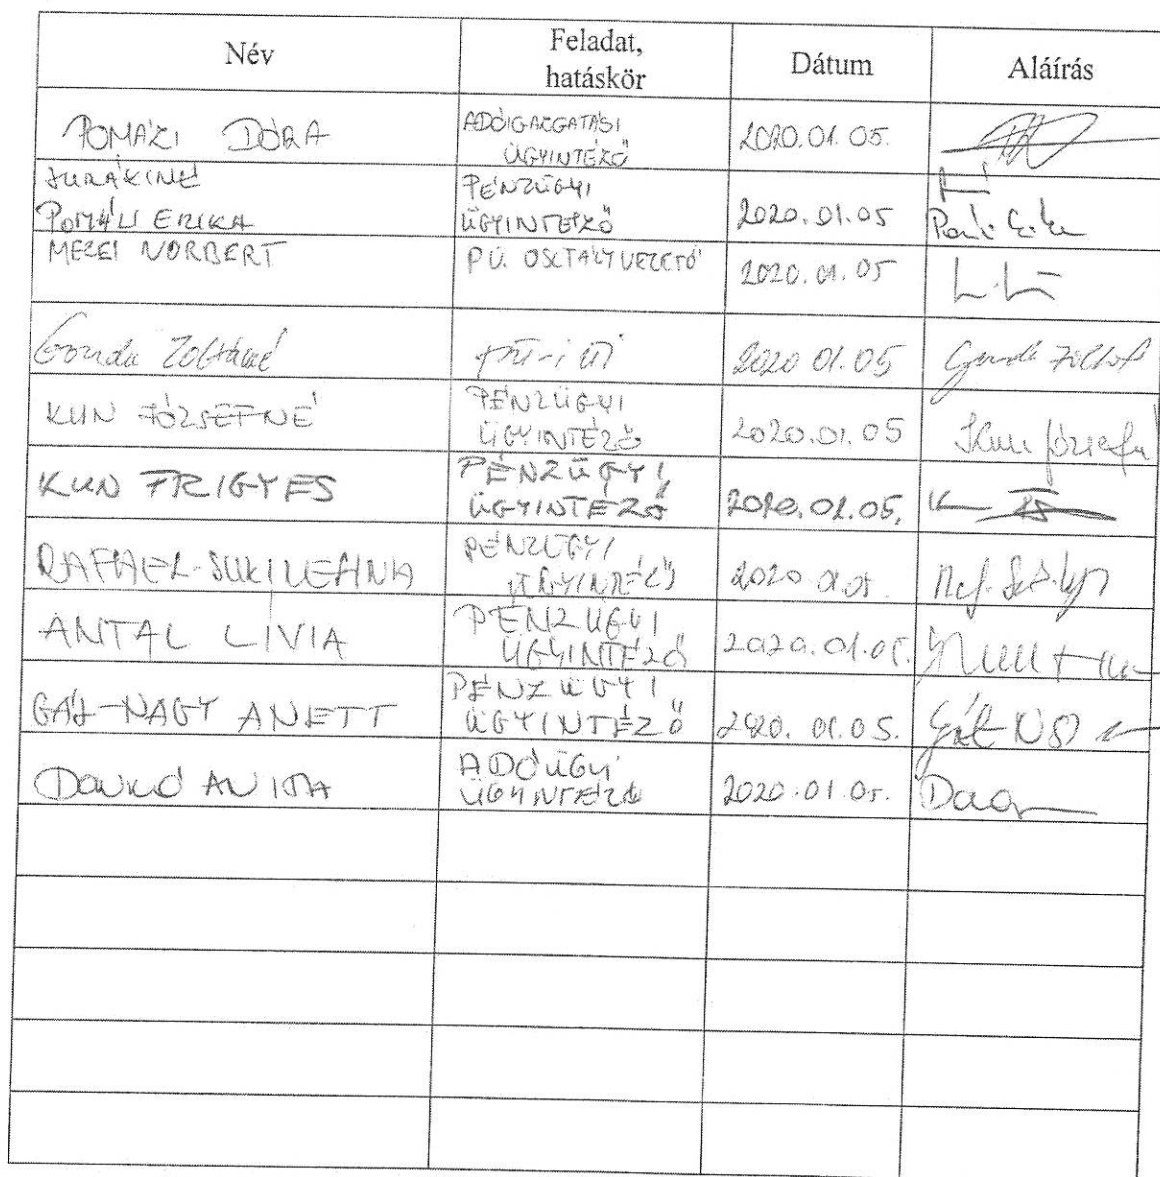 Név
Feladat,
hatáskör
Dátum
Aláírás
POMÁZI DÓRA
ADÓIGAZGATÁSI
ÜGYINTÉZŐ
2020.01.05.
JURÁKINÉ
POMÁZI ERIKA
PÉNZÜGYI
ÜGYINTÉZŐ
2020.01.05
MEZEI NORBERT
PÜ. OSZTÁLYVEZETŐ
2020.01.05
Gonda Zoltánné
pü-i üi
2020.01.05
KUN JÓZSEFNÉ
PÉNZÜGYI
ÜGYINTÉZŐ
2020.01.05
Kun Józsefné
KUN FRIGYES
PÉNZÜGYI
ÜGYINTÉZŐ
2020.01.05.
RAFAEL-SÜKI
PÉNZÜGYI
ÜGYINTÉZŐ
2020.01.05.
ANTAL LÍVIA
PÉNZÜGYI
ÜGYINTÉZŐ
2020.01.05.
GÁL-NAGY ANETT
PÉNZÜGYI
ÜGYINTÉZŐ
2020.01.05.
DANKÓ ANITA
ADÓÜGYI
ÜGYINTÉZŐ
2020.01.05.